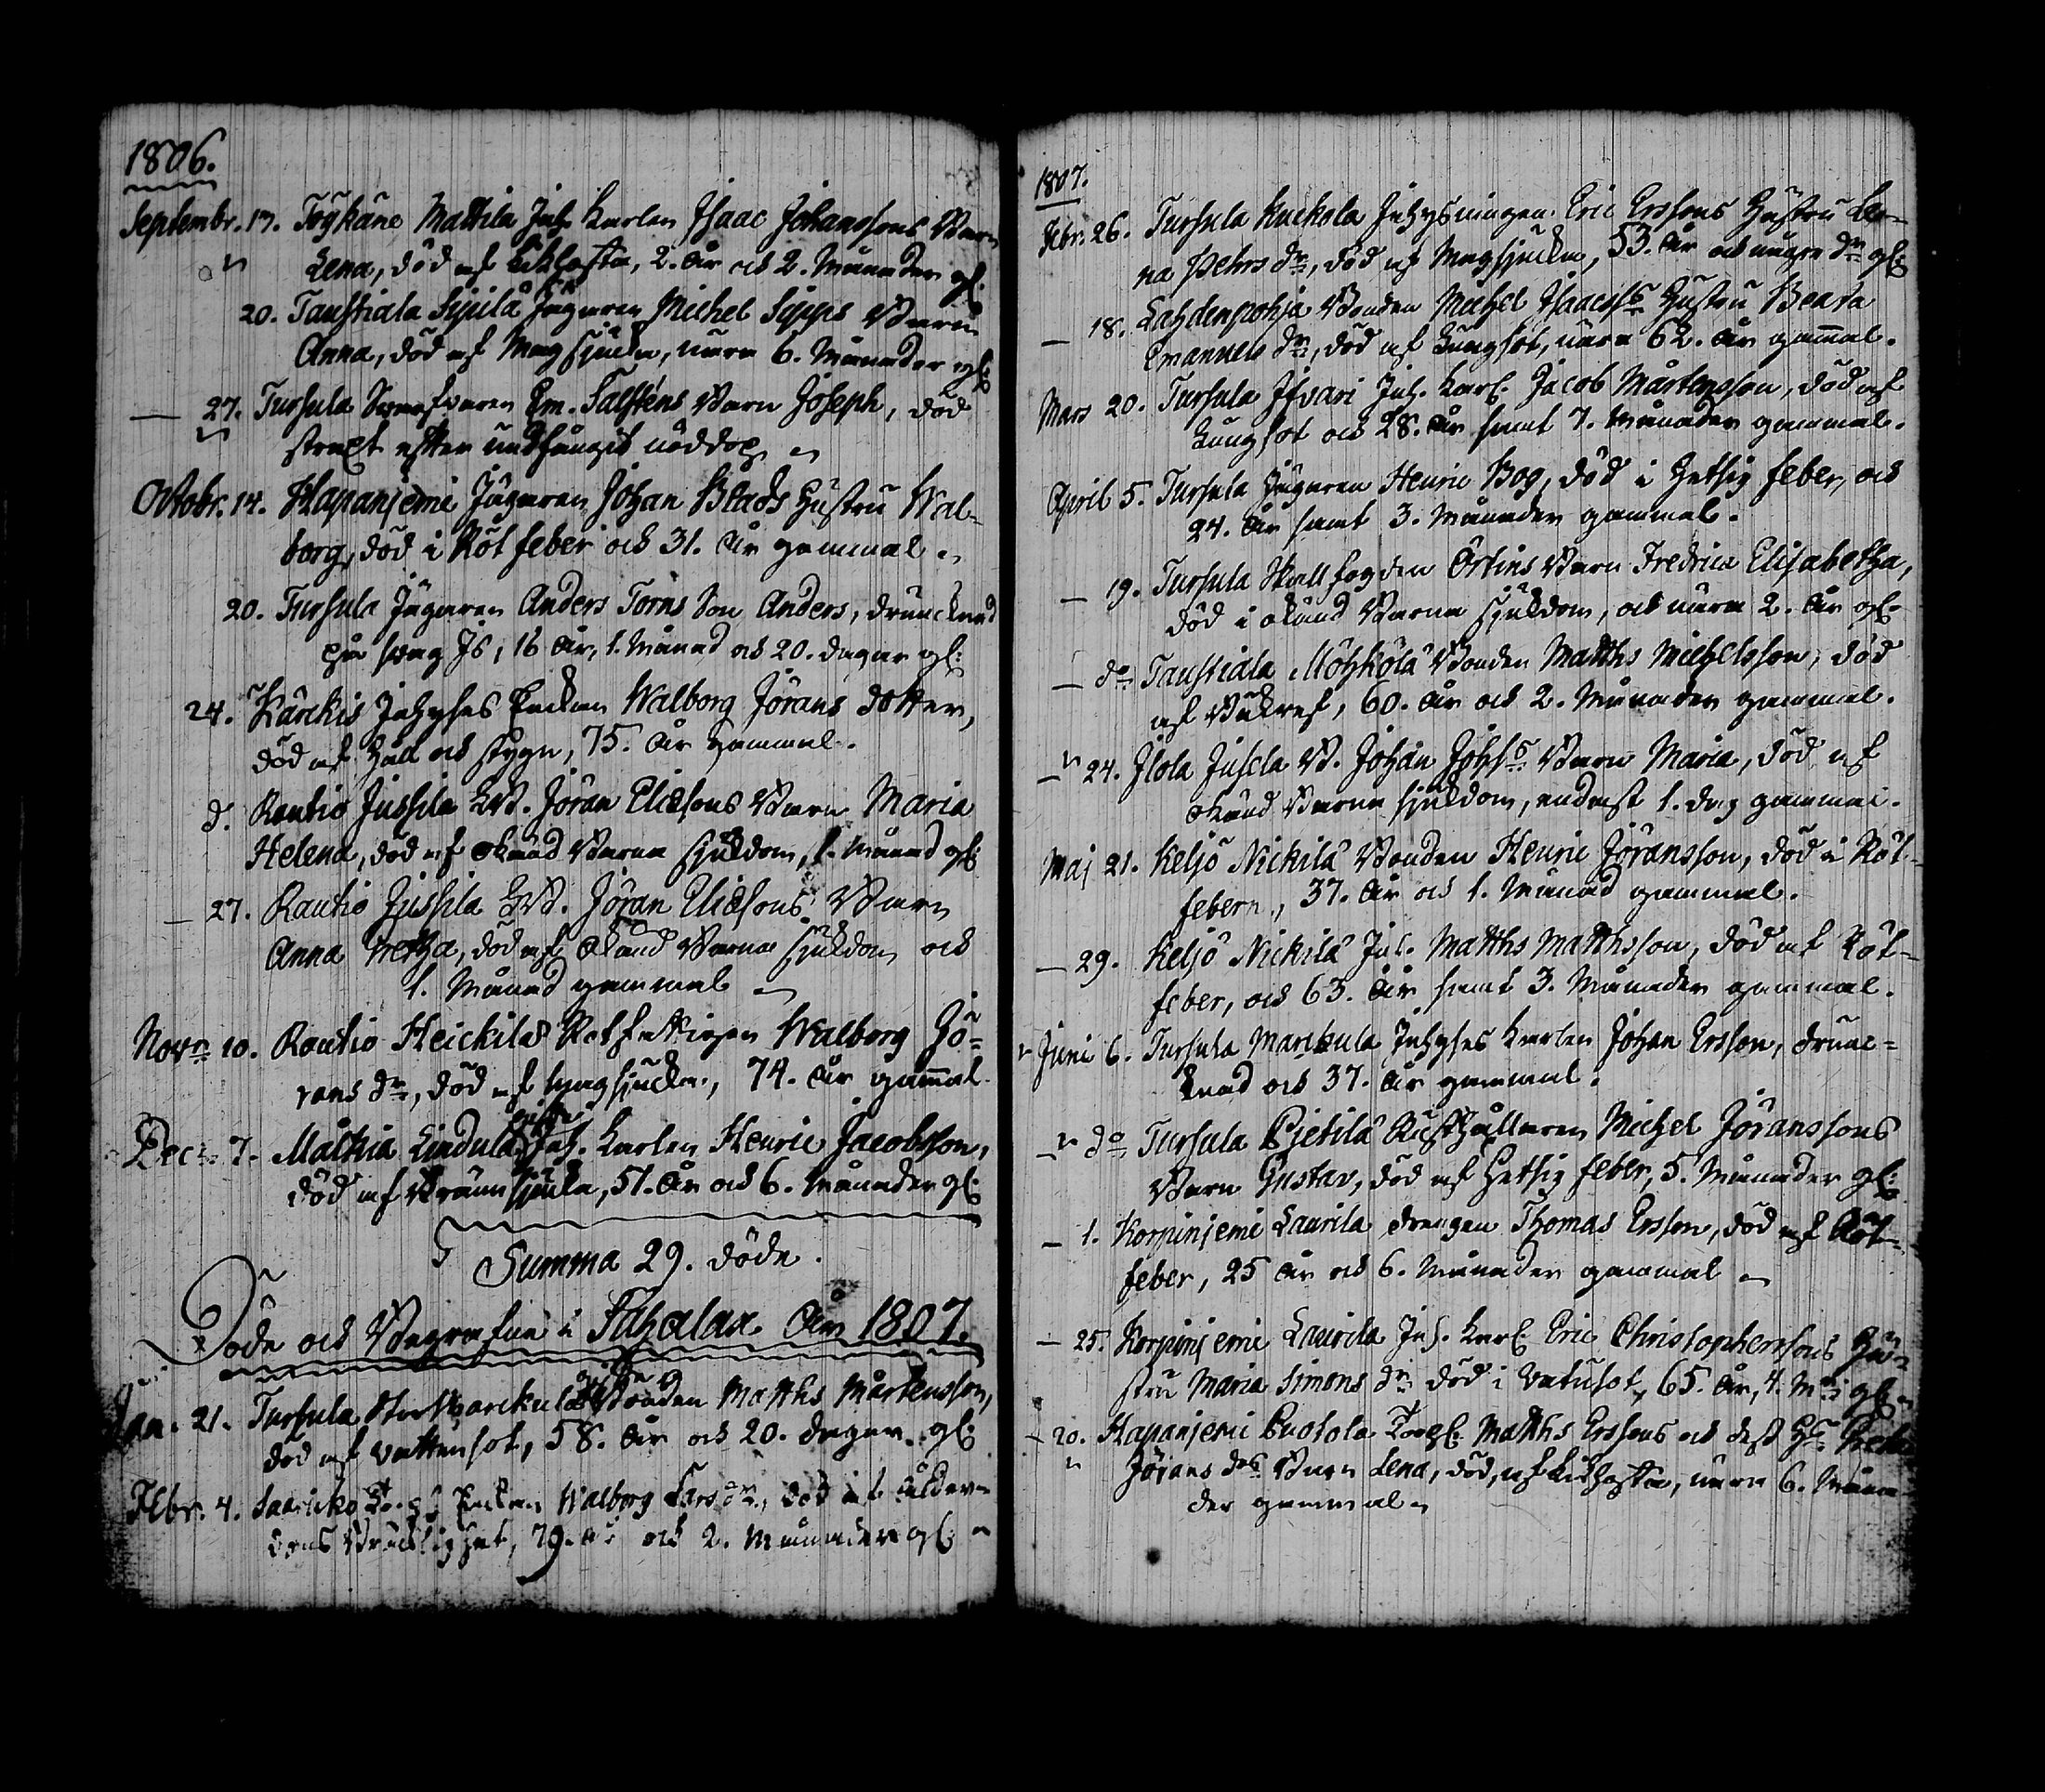 1806.
Septembr. 17. Töykäne Mattila Inh. Karlen Isaac Johanssons Barn
Lena, död af Kikhosta, 2. år och 2. Månader gl:
20. Taustiala Sipilä Jägaren Michel Sipps Barn
Anna, död af Magsjuka, nära 6. Månader gl:
— 27. Tursula Swarfvaren Em. Salsténs Barn Joseph, död
straxt efter undfångit nöddop
Octobr. 14. Hapanjemi Jägaren Johan Blads Hustru Wal-
borg, död i Rötfeber och 31. år gammal
20. Tursula Jägaren Anders Törns Son Anders, drunknad
på swag Is, 16 år, 1. Månad och 20. dagar gl:
24. Kärckis Inhyses Enckan Walborg Jörans dotter,
död af håll och styng, 75. år gammal.
d. Rautio Jussila Bd. Jöran Eliæsons Barn Maria
Helena, död af okänd Barna sjukdom, 1. Månad gl:
— 27. Rautio Jussila Bd. Jöran Eliæsons Barn
Anna Gretha, död af okänd Barna sjukdom och
1. Månad gammal
Novr 10. Rautio Heickilä Rotfattigen Walborg Jö-
rans dr, död af Magsjuka, 74. år gam̄al.
Decr. 7. Mälkiä Lindula Inh. Karlen Henric Jacobsson,
död af Brännsjuka, 51. år och 6. Månader gl:
Summa 29. döde.
Döde och Begrafne i Sahalax År 1807.
Jan. 21. Tursula Stor Marckula Bonden Matths Mårtensson,
död af wattusot, 58. år och 20. dagar gl:
Febr. 4. Saaricko Enckan Walborg Larsdr, död af ålder-
doms Bräcklighet, 79. år och 2. Månader gl:
1807.
Febr. 26. Tursula Kuckola Inhysningen Eric Erssons Hustru Le-
na Pehrs dr, död af Magsjukan, 53. år och några dr gl:
— 18. Lahdenpohja Bonden Michel Isacss Hustru Beata
Emanuels dr, död af Lungsot, nära 62. år gam̄al.
Mars 20. Tursula Ifvari Inh. Karl. Jacob Mårtensson, död af
Lungsot och 28. år samt 7. Månader gammal.
April 5. Tursula Jägaren Henric Bog, död i hetsig feber, och
24. år samt 3. Månader gammal.
— 19. Tursula Skallfogden Örtins Barn Fredrica Elisabetha,
död i okänd Barna sjukdom, och nära 2. år gl.
— do Taustiala Möyskölä Bonden Matths Michelsson, död
af Båkref, 60. år och 2. Månader gammal.
— 24. Ilola Jusela B. Johan Johss Barn Maria, död af
okänd Barna sjukdom, endast 1. dag gammal.
Maj 21. Keljo Nickilä Bonden Henric Jöransson, död i Röt-
febern, 37. år och 1. Månad gammal.
— 29. Keljo Nickilä Inh. Matths Matthsson, död af Röt-
feber, och 63. år samt 3. Månader gammal.
Juni 6. Tursula Marckula Inhyses Karlen Johan Ersson, drunc-
knad och 37. år gammal.
— do Tursula Pietilä Rusthållaren Michel Jöranssons
Barn Gustav, död af hetsig feber, 5. Månader gl:
— 1. Korpinjemi Laurila drengen Thomas Ersson, död af Röt-
feber, 25 år och 6. Månader gammal
— 25. Korpinjemi Laurila Inh. Karl. Eric Christopherssons Hu-
stru Maria Simons dr död i Vatusot, 65. år, 4. Mr gl:
— 20. Hapanjemi Puotola Torp. Matths Erssons och dess H: Greta
Jörans drs Barn Lena, död af Kikhosta, nära 6. Måna-
der gammal